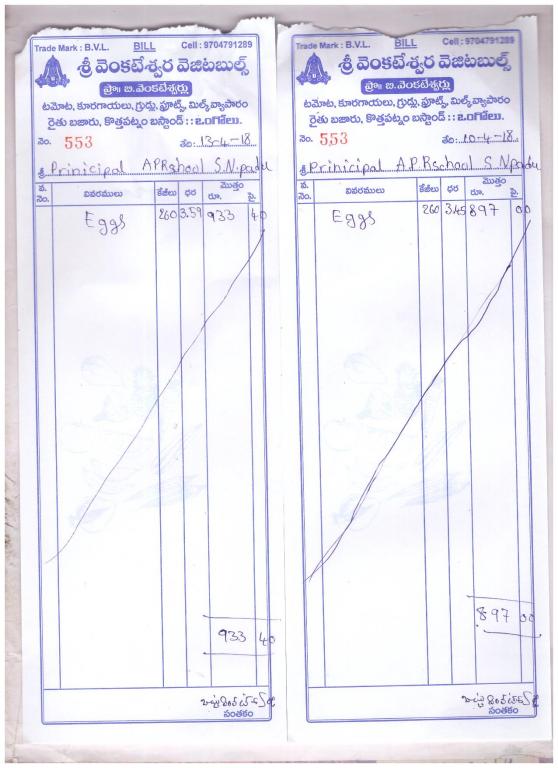 Trade Mark : B.V.L. BILL Cell : 9704791289
శ్రీ వెంకటేశ్వర వెజిటబుల్స్
ప్రొః బి.వెంకటేశ్వర్లు
టమోట, కూరగాయలు, గ్రుడ్లు, ఫ్రూట్స్, మిల్క్ వ్యాపారం
రైతు బజారు, కొత్తపట్నం బస్టాండ్ :: ఒంగోలు.
నెం. 553 తేం: 13-4-18
శ్రీ Prinicipal APRschool S.Npadu
వ. నెం. వివరములు కేజీలు ధర మొత్తం రూ. పై.
Eggs 260 3.59 933 40
933 40
సంతకం
Trade Mark : B.V.L. BILL Cell : 9704791289
శ్రీ వెంకటేశ్వర వెజిటబుల్స్
ప్రొః బి.వెంకటేశ్వర్లు
టమోట, కూరగాయలు, గ్రుడ్లు, ఫ్రూట్స్, మిల్క్ వ్యాపారం
రైతు బజారు, కొత్తపట్నం బస్టాండ్ :: ఒంగోలు.
నెం. 553 తేం: 10-4-18
శ్రీ Prinicipal A.P.Rschool S.Npadu
వ. నెం. వివరములు కేజీలు ధర మొత్తం రూ. పై.
Eggs 260 3.45 897 00
897 00
సంతకం